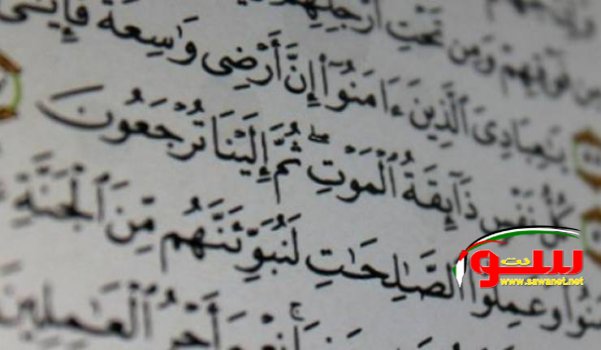 مِن فَوۡقِهِمۡ وَمِن تَحۡتِ أَرۡجُلِهِمۡ
يَٰعِبَادِيَ ٱلَّذِينَ ءَامَنُوٓاْ إِنَّ أَرۡضِي وَٰسِعَةٞ فَإِيَّٰيَ
كُلُّ نَفۡسٖ ذَآئِقَةُ ٱلۡمَوۡتِۖ ثُمَّ إِلَيۡنَا تُرۡجَعُونَ
وَعَمِلُواْ ٱلصَّٰلِحَٰتِ لَنُبَوِّئَنَّهُم مِّنَ ٱلۡجَنَّةِ
أَجۡرُ ٱلۡعَٰمِلِينَ
سوا
نت
www.sawanet.net